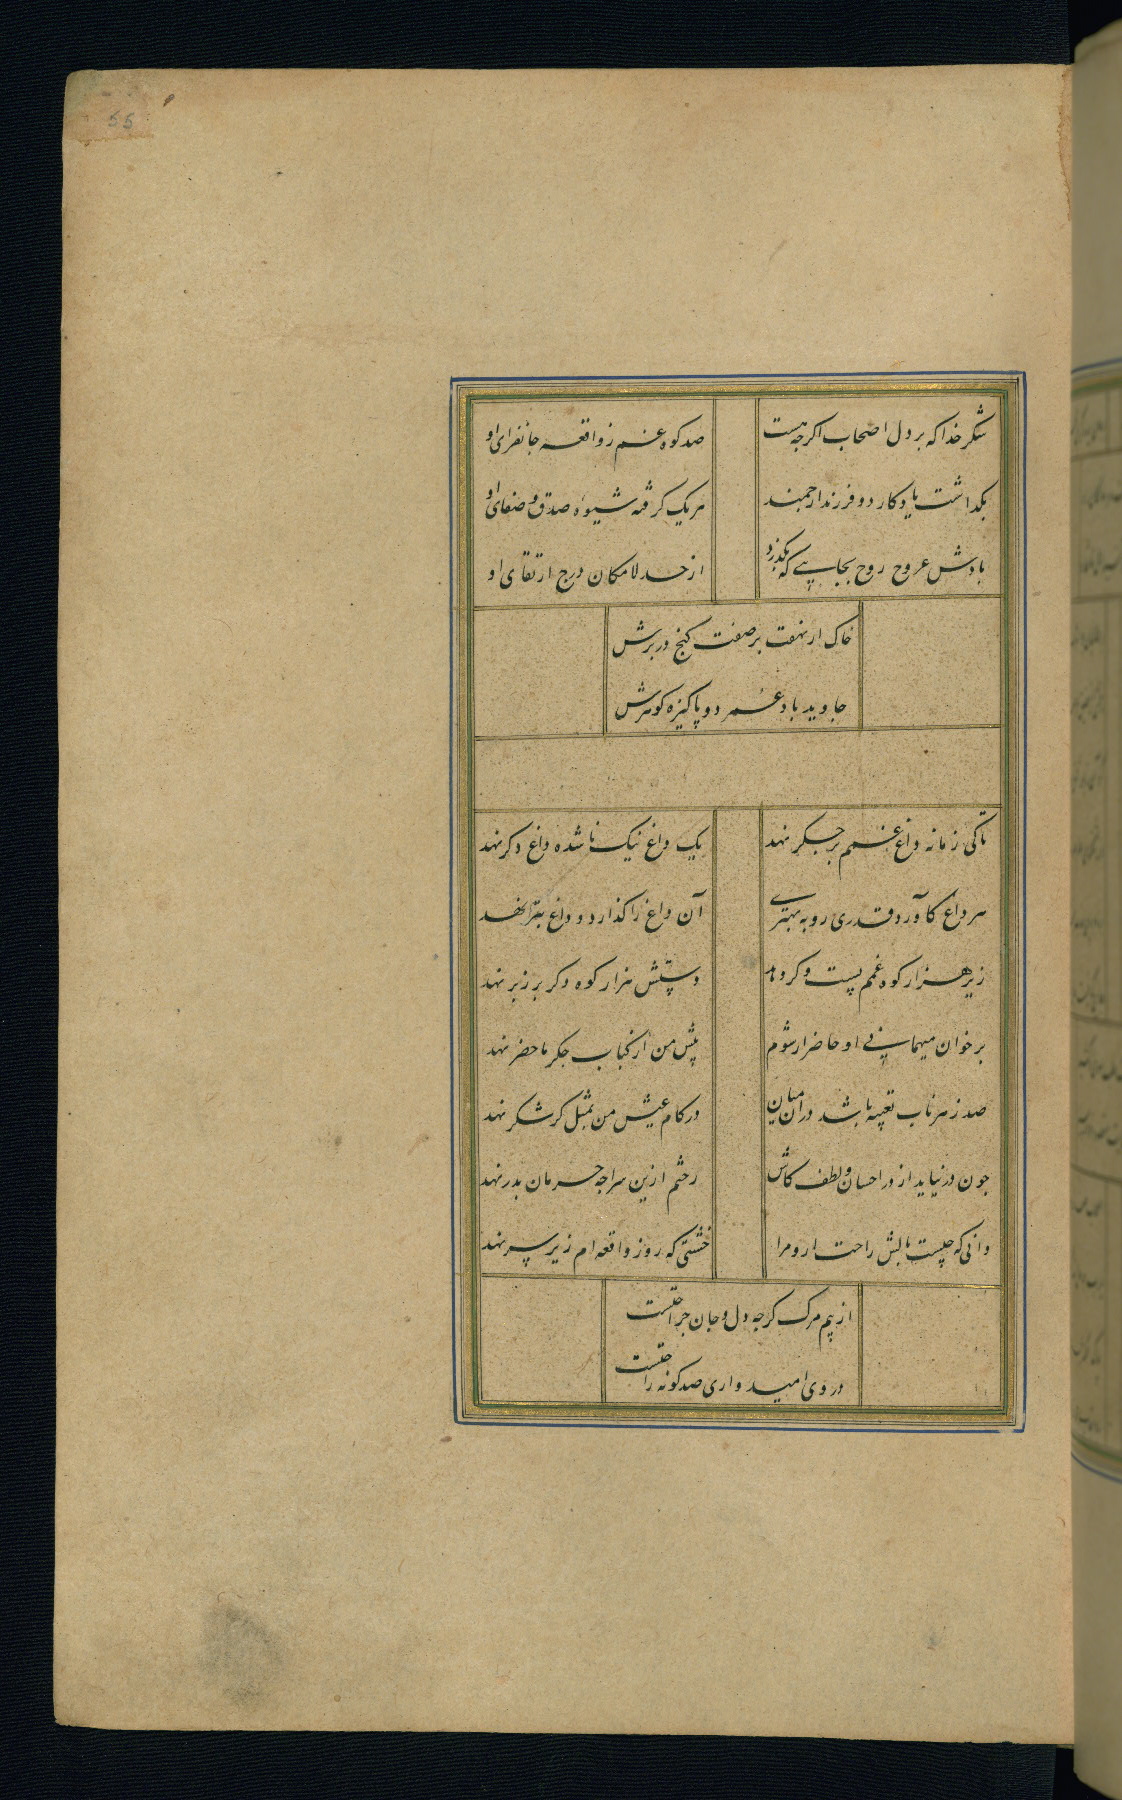 55
شکر خدا که بر دل اصحاب اگرچه هست صد کوه غم ز واقعه جانفزای او
بگذاشت یادگار دو فرزند ارجمند هر یک گرفته شیوه صدق و صفای او
بادش عروج روح بجایی که نگذرد از حد لامکان درج ارتقای او
خاک ار نهفت بر صفت گنج در برش
جاوید باد عمر دو پاکیزه گوهرش
تا کی زمانه داغ غمم بر جگر نهد یک داغ نیک ناشده داغ دگر نهد
هر داغ کاورد قدری رو به بهتری آن داغ را گذارد و داغ بتر نهد
زیر هزار کوه غمم پست کرد و باز دستش هزار کوه دگر بر زبر نهد
بر خوان میهمانی او حاضر ار شوم پیش من از کباب جگر ماحضر نهد
صد زهر ناب تعبیه باشد در آن میان در کام عیش من بمثل گر شکر نهد
چون در نیاید از در احسان و لطف کاش رختم ازین سراچه حرمان بدر نهد
دانی که چیست بالش راحت ازو مرا خشتی که روز واقعه ام زیر سر نهد
از بیم مرگ گرچه دل و جان جراحتست
در وی امیدواری صد گونه راحتست